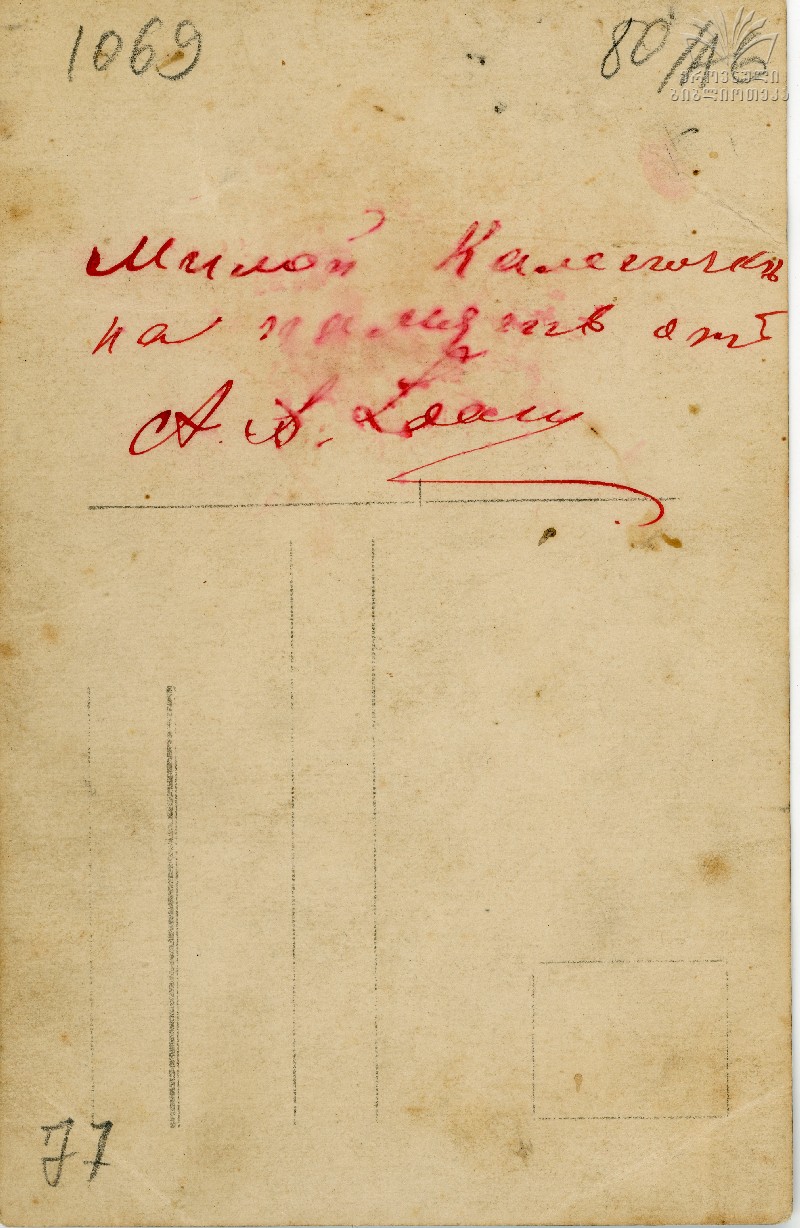 1069
80/
ეროვნული
ბიბლიოთეკა
Милой
на память отъ
А. А.
77